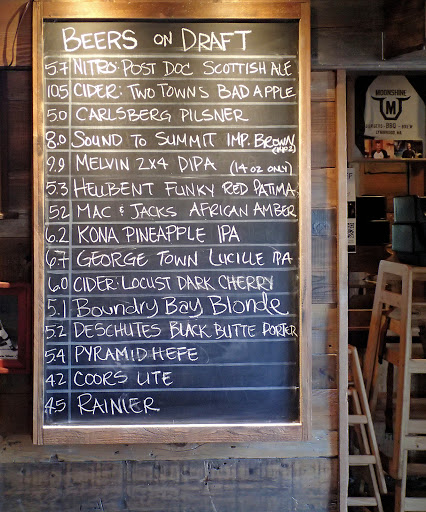 BEERS ON DRAFT
5.7 NITRO: POST DOC SCOTTISH ALE
10.5 CIDER: TWO TOWNS BAD APPLE
5.0 CARLSBERG PILSNER
8.0 SOUND TO SUMMIT IMP. BROWN
(NITRO)
9.9 MELVIN 2x4 DIPA (14 OZ ONLY)
5.3 HELLBENT FUNKY RED PATIMA
5.2 MAC & JACKS AFRICAN AMBER
6.2 KONA PINEAPPLE IPA
6.7 GEORGE TOWN LUCILLE IPA
6.0 CIDER: LOCUST DARK CHERRY
5.1 Boundry Bay Blonde
5.2 DESCHUTES BLACK BUTTE PORTER
5.4 PYRAMID HEFE
4.2 COORS LITE
4.5 RAINIER
MOONSHINE
M
BURGERS • BBQ • BREW